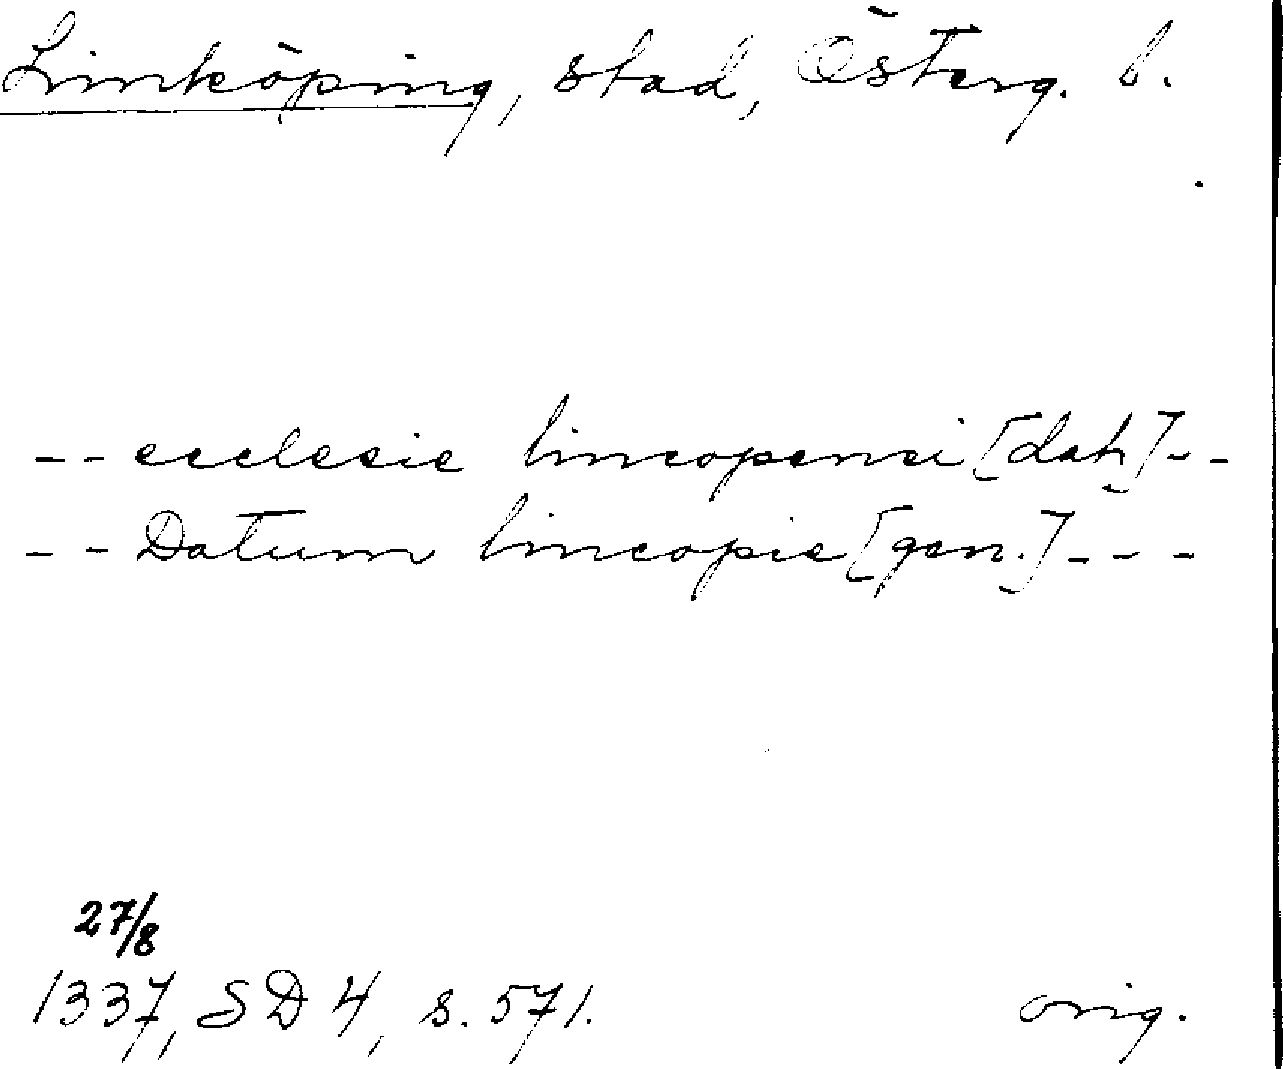 Linköping, stad, Österg. l.
-- ecclesie lincopensi [dat.] --
-- Datum lincopie [gen.] ---
27/8
1337, SD 4, s. 571. orig.